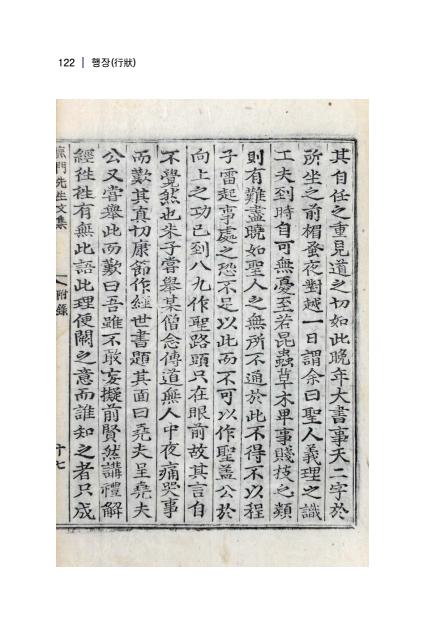 122 | 행장(行狀)
其自任之重見道之切如此晩年大書事天二字於
所坐之前楣蚤夜對越一日謂余曰聖人義理之識
工夫到時自可無憂至若昆蟲草木卑事賤技之類
則有難盡曉如聖人之無所不通於此不得不以程
子雷起事處之恐不足以此而不可以作聖盖公於
向上之功已到八九作聖路頭只在眼前故其言自
不覺然也朱子嘗擧某僧念傳道無人中夜痛哭事
而歎其真切康節作經世書題其面曰堯夫呈堯夫
公又嘗擧此而歎曰吾雖不敢妄擬前賢然講禮解
經徃徃有無此語此理便闕之意而誰知之者只成
門先生文集
附錄
十七